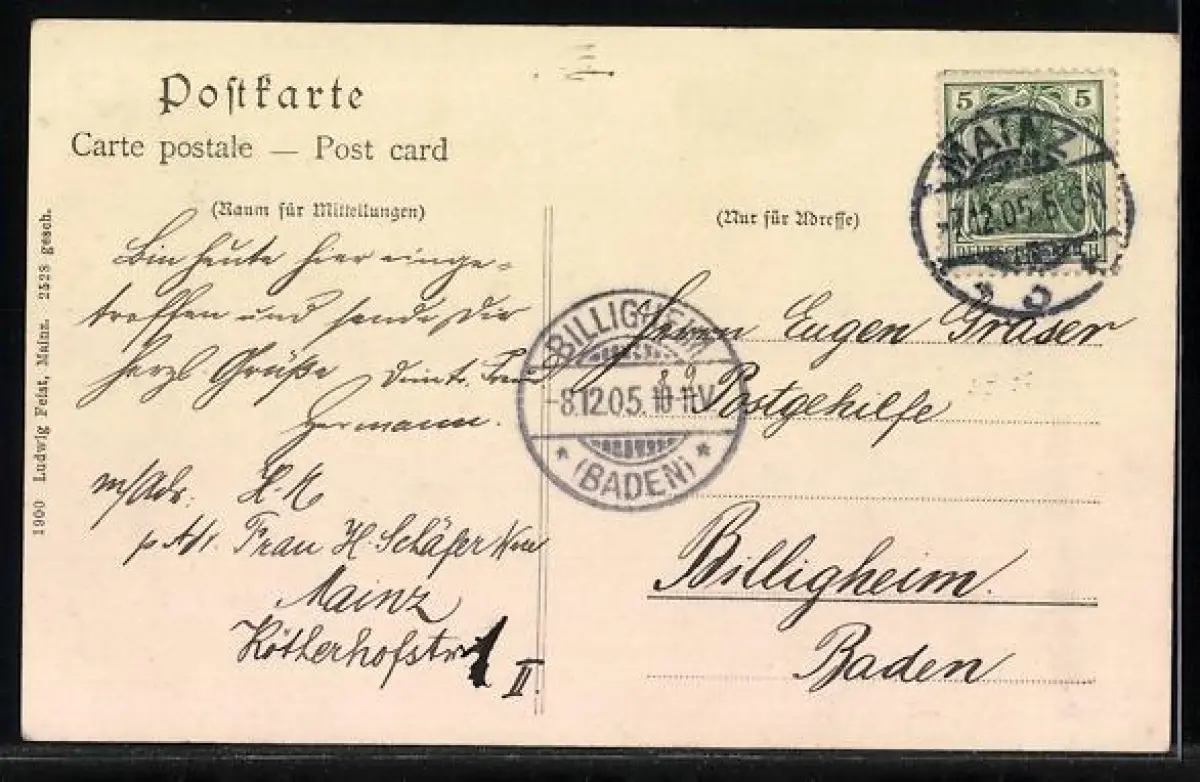 Postkarte
Carte postale — Post card
(Raum für Mitteilungen)
(Nur für Adresse)
1900 Ludwig Feist, Mainz. 2528 gesch.
Bin heute hier einge-
troffen und sende Dir
herzl Grüße Freund
Hermann.
m/Adr. H. K
p Adr. Frau H. Schäfer Wwe
Mainz
Kötherhofstr 1
II.
5 5
DEUTSCHES REICH
MAINZ
-7.12.05. 6-
BILLIGHEIM
-8.12.05.
(BADEN)
Herrn Eugen Graser
Postgehilfe
Billigheim.
Baden